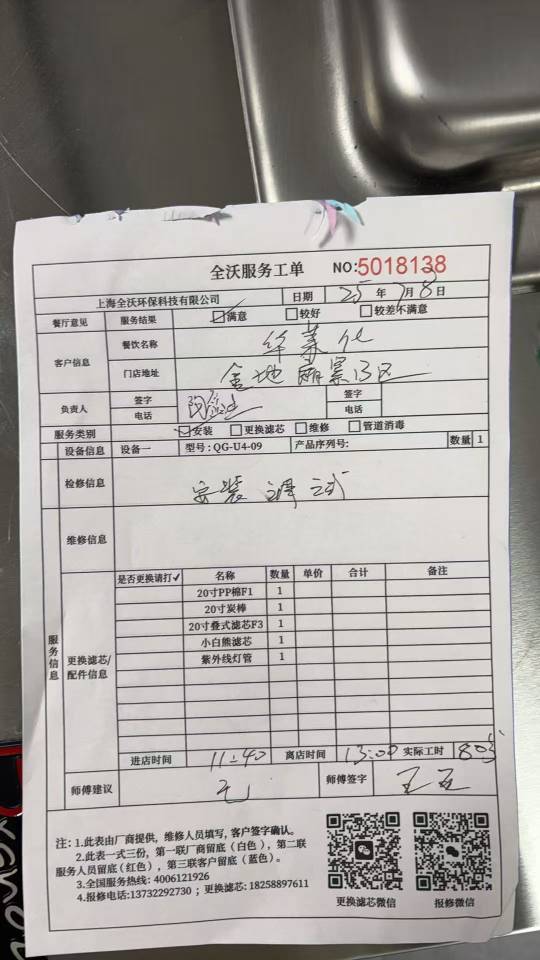 全沃服务工单 NO:5018138
上海全沃环保科技有限公司 日期 25年7月8日
餐厅意见 服务结果 ☑满意 □较好 □较差不满意
客户信息 餐饮名称 华莱化
门店地址 金地 B区
负责人 签字 签字
电话 电话
服务类别 ☑安装 □更换滤芯 □维修 □管道消毒
设备信息 设备一 型号:QG-U4-09 产品序列号: 数量 1
检修信息 安装调试
维修信息
服务信息
更换滤芯/配件信息
是否更换请打✓ 名称 数量 单价 合计 备注
20寸PP棉F1 1
20寸炭棒 1
20寸叠式滤芯F3 1
小白熊滤芯 1
紫外线灯管 1
进店时间 11:40 离店时间 13:00 实际工时 80分
师傅建议 无 师傅签字 王
注:1.此表由厂商提供,维修人员填写,客户签字确认。
2.此表一式三份,第一联厂商留底(白色),第二联
服务人员留底(红色),第三联客户留底(蓝色)。
3.全国服务热线:4006121926
4.报修电话:13732292730;更换滤芯:18258897611
更换滤芯微信 报修微信